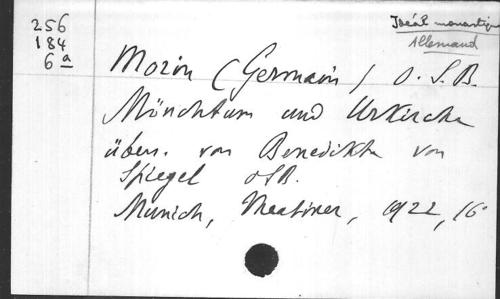 256
184
6 a
Idéal monastique
Allemand
Morin (Germain) O.S.B.
Mönchtum und Urkirche
übers. von Benedikta von
Spiegel OSB.
Munich, Theatiner, 1922, 16°